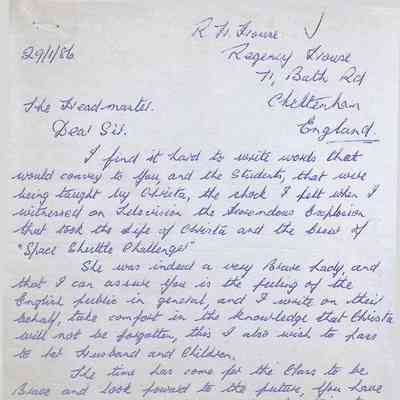 R H House
29/1/86
Regency House
71, Bath Rd
Cheltenham
England.
The Headmaster.
Dear Sir.
I find it hard to write words that
would convey to you, and the Students, that were
being taught by Christa, the shock I felt when I
witnessed on Television the Horrendous Explosion
that took the Life of Christa and the Crew of
"Space Shuttle Challenger"
She was indeed a very Brave Lady, and
that I can assure you is the feeling of the
English public in general, and I write on their
behalf, take comfort in the knowledge that Christa
will not be forgotten, this I also wish to pass
to her Husband and Children.
The time has come for the Class to be
Brave and look foward to the future, you have